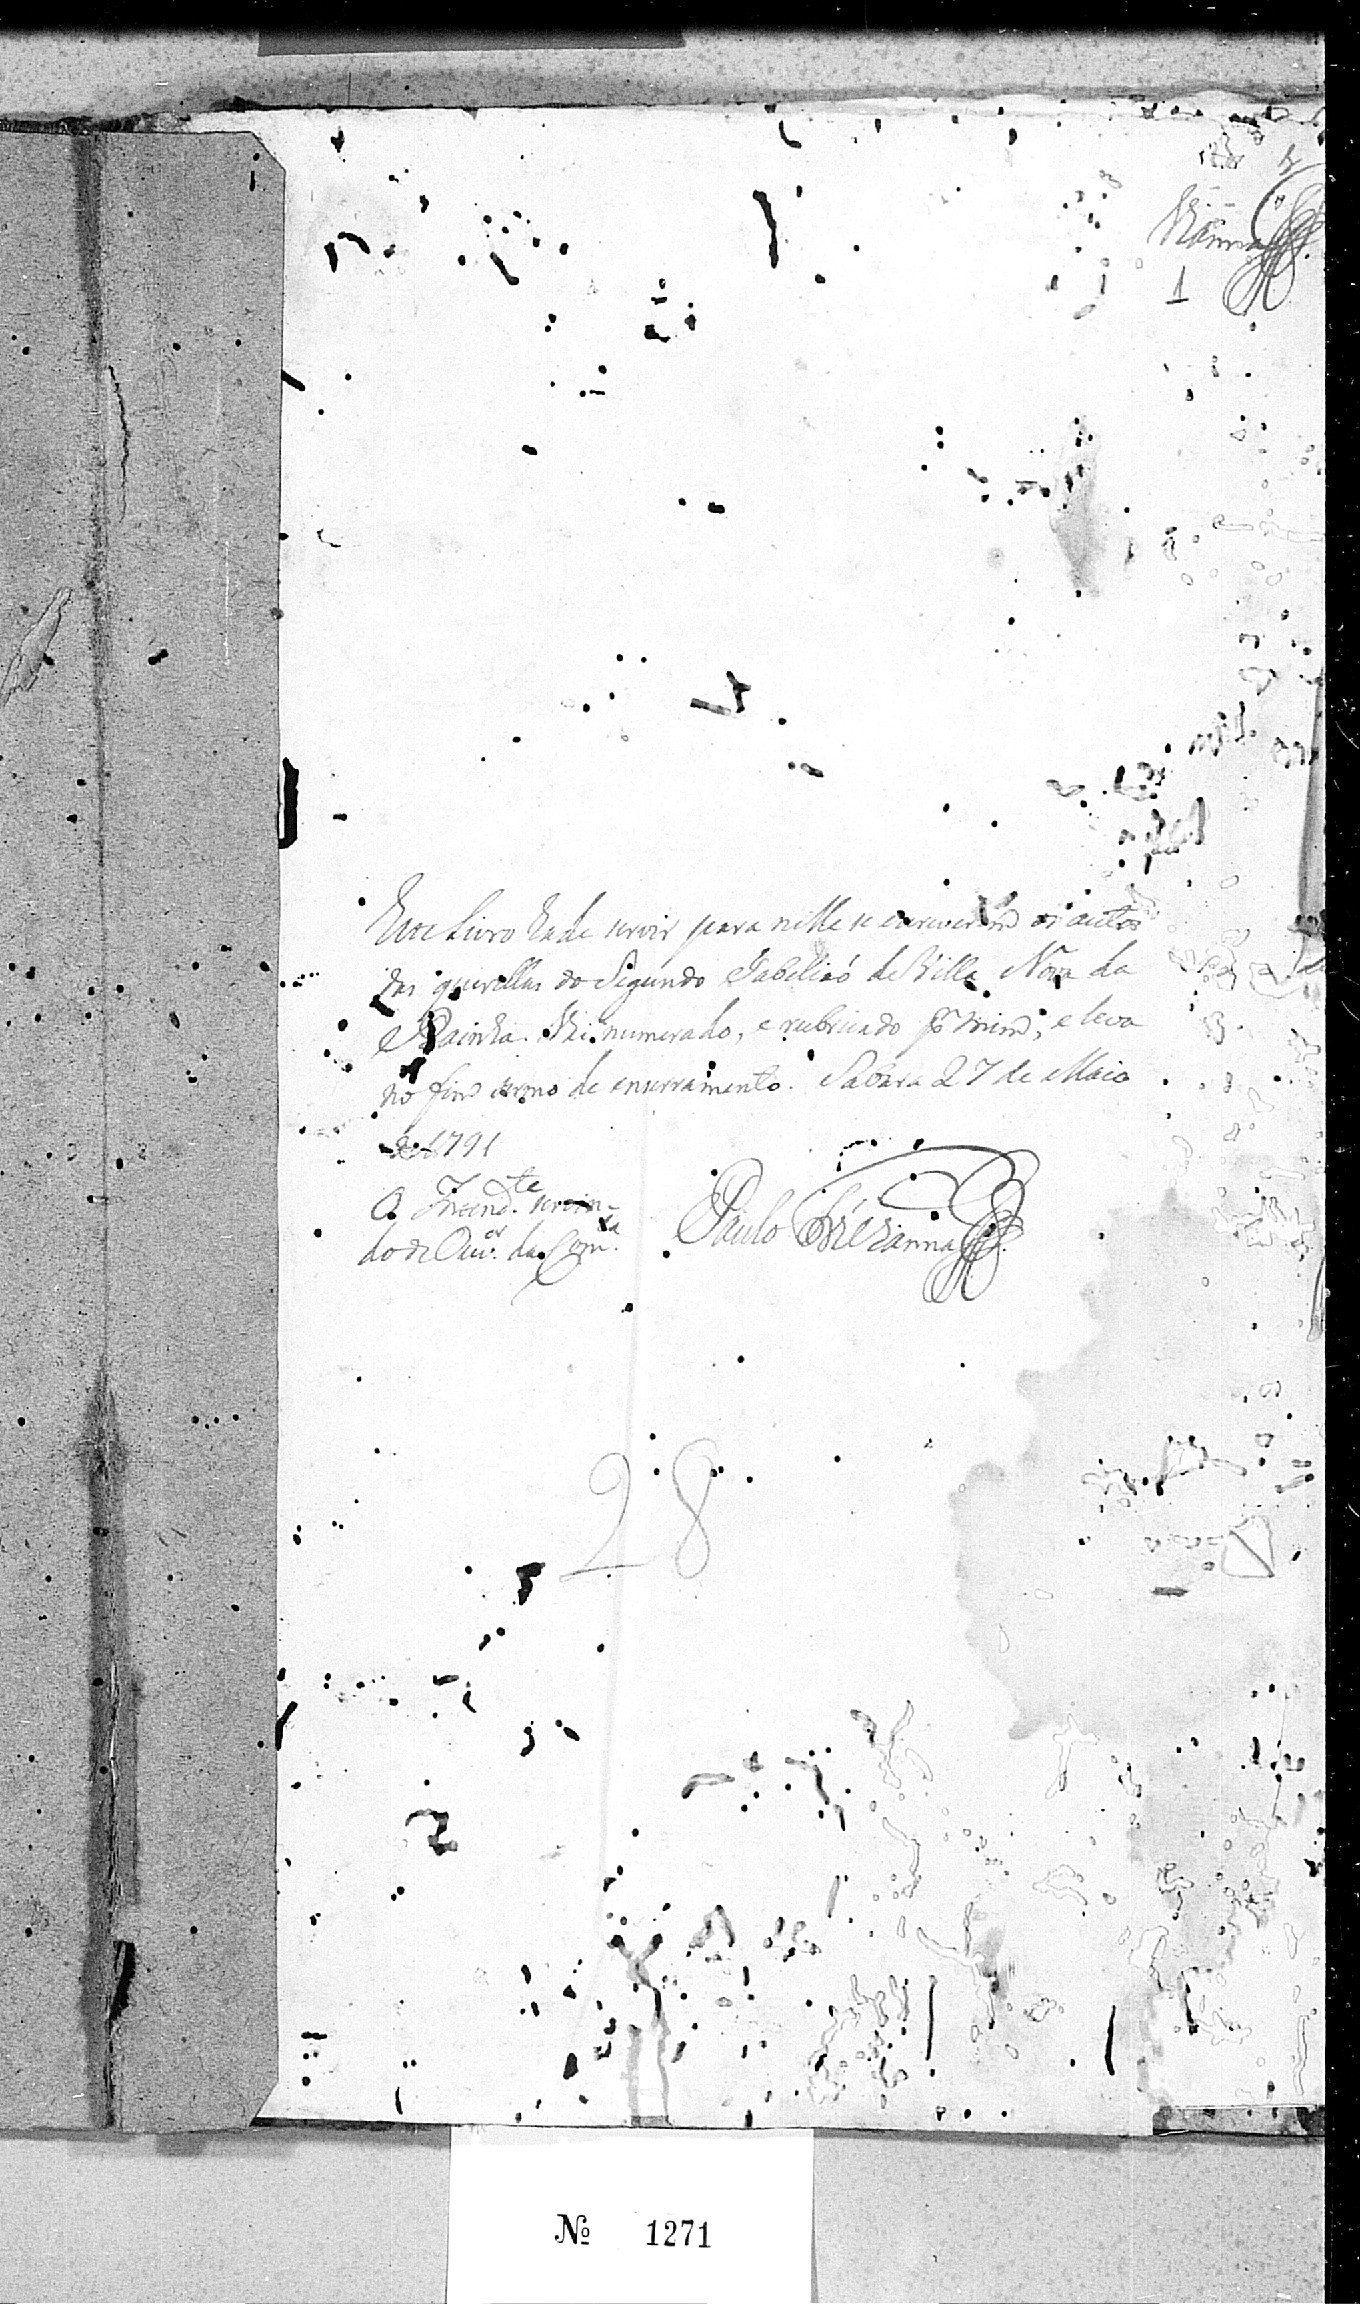 Vianna
1
Este Livro hade servir para nelle se escreverem os autos
das querellas do Segundo Tabelliaó de Villa Nova da
Rainha. Vai numerado, e rubricado pr mim, e leva
no fim termo de enserramento. Sabara 27 de Maio
de 1791
O Intend.te servin-
do de Ouv.or da Com.ca
Paulo Frz Vianna
28
№ 1271